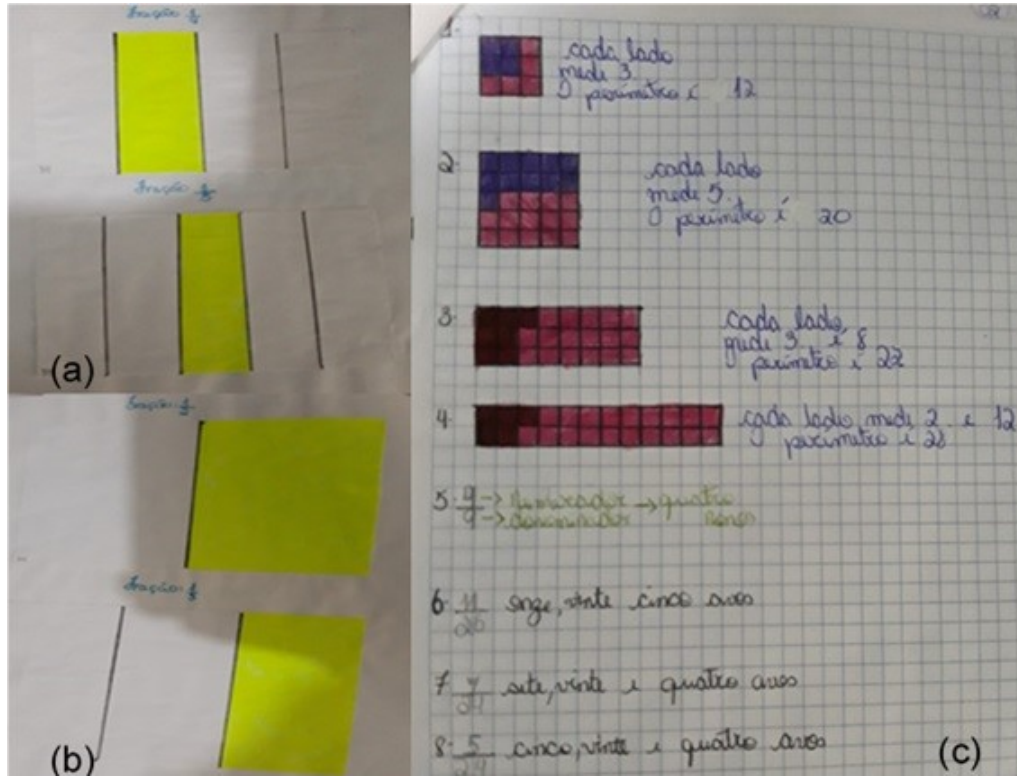 Fração 1/4
Fração 1/5
(a)
Fração 1/2
Fração 1/3
(b)
1.
cada lado
mede 3.
O perímetro é 12
2.
cada lado
mede 5.
O perímetro é 20
3.
cada lado
mede 3 e 8
perímetro é 22
4.
cada lado mede 2 e 12
perímetro é 28
5. 4/9 → numerador → quatro
→ denominador nonos
6. 11/25 onze, vinte cinco avos
7. 7/24 sete, vinte e quatro avos
8. 5/24 cinco, vinte e quatro avos
(c)